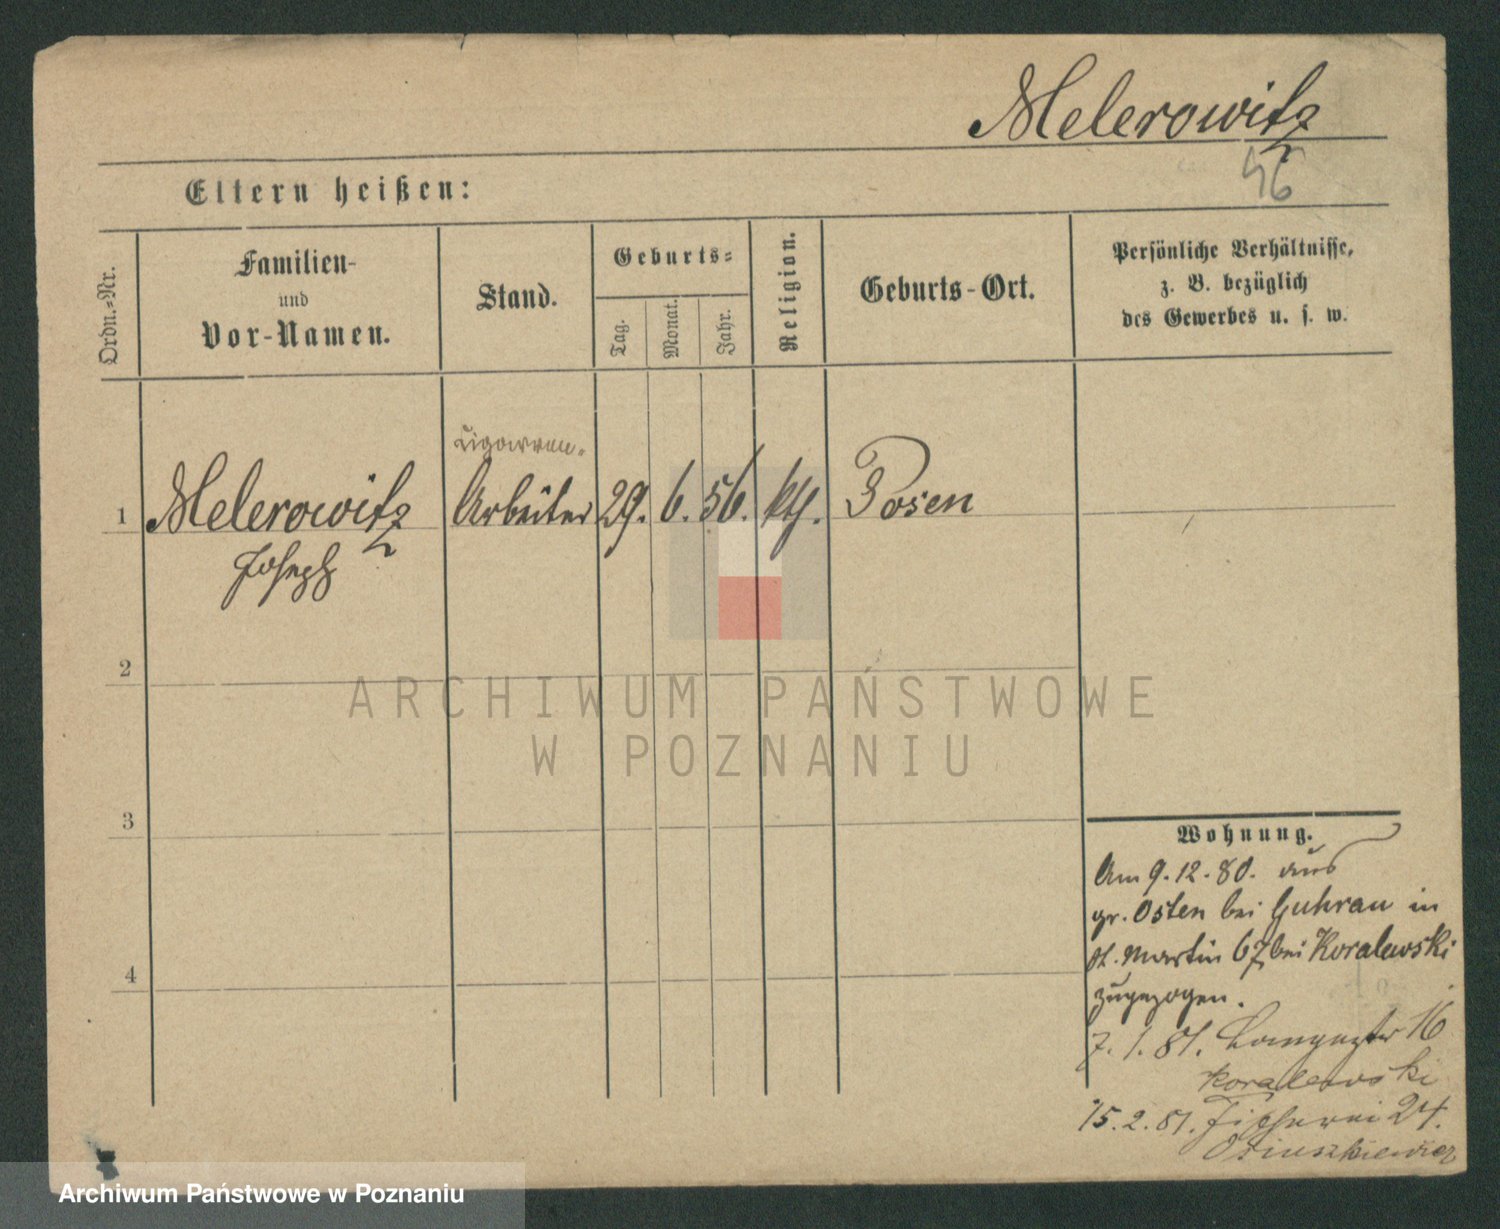 Melerowitz
46
Eltern heißen:
Ordn.-Nr.
Familien-
und
Vor-Namen.
Stand.
Geburts-
Tag.
Monat.
Jahr.
Religion.
Geburts-Ort.
Persönliche Verhältnisse,
z. B. bezüglich
des Gewerbes u. s. w.
Cigarren-
1 Melerowitz Arbeiter 29. 6. 56. kth. Posen
Joseph
2
ARCHIWUM PAŃSTWOWE
W POZNANIU
3
Wohnung.
Am 9.12.80. aus
gr. Osten bei Guhrau in
St. Martin 67 bei Koralewski
4
zugezogen.
7. 1. 81. 16
Koralewski
15. 2. 81. Fischerei 24.
Osiuszkiewicz
Archiwum Państwowe w Poznaniu